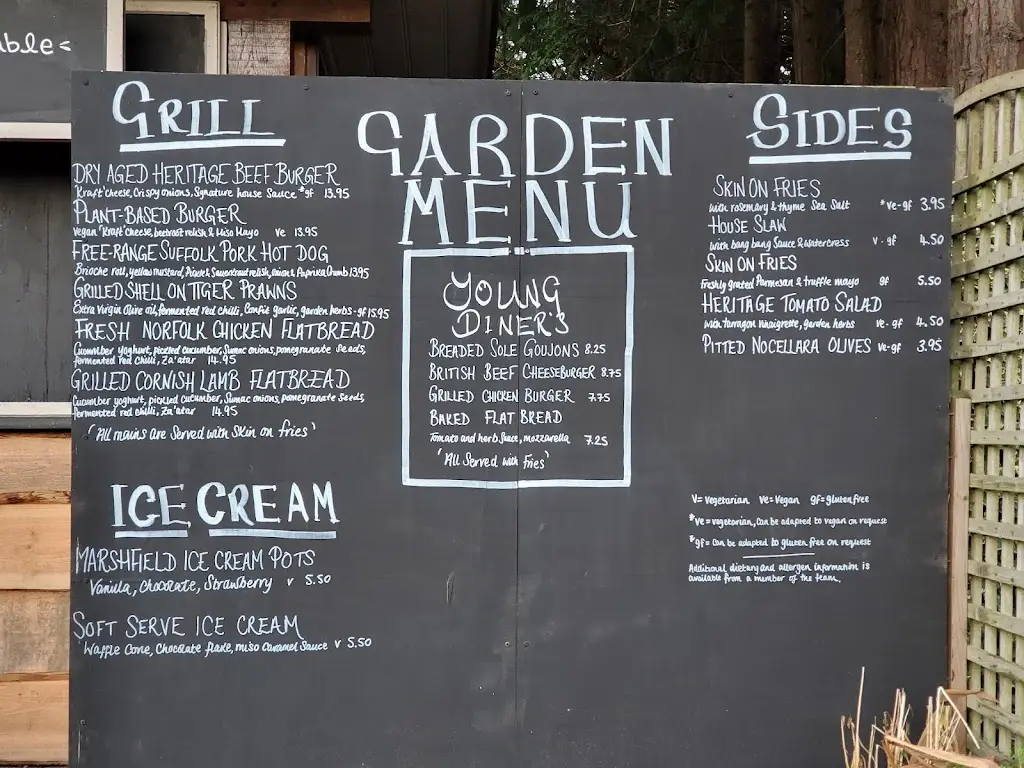 able<
GRILL
DRY AGED HERITAGE BEEF BURGER
Kraft cheese, Crispy onions, Signature house Sauce *gf 13.95
PLANT-BASED BURGER
vegan Kraft cheese, beetroot relish & Miso Mayo ve 13.95
FREE-RANGE SUFFOLK PORK HOT DOG
Brioche roll, yellow mustard, Pickle & Sauerkraut relish, onion & Paprika Crumb 13.95
GRILLED SHELL ON TIGER PRAWNS
Extra Virgin olive oil, fermented red chilli, Confit garlic, garden herbs - gf 15.95
FRESH NORFOLK CHICKEN FLATBREAD
Cucumber yoghurt, pickled cucumber, Sumac onions, pomegranate Seeds,
fermented red chilli, Za'atar 14.95
GRILLED CORNISH LAMB FLATBREAD
Cucumber yoghurt, pickled cucumber, Sumac onions, pomegranate Seeds,
fermented red chilli, Za'atar 14.95
'All mains are Served with Skin on fries'
ICE CREAM
MARSHFIELD ICE CREAM POTS
Vanilla, Chocolate, Strawberry v 5.50
SOFT SERVE ICE CREAM
Waffle Cone, Chocolate flake, miso Caramel Sauce v 5.50
GARDEN
MENU
YOUNG
DINER'S
BREADED SOLE GOUJONS 8.25
BRITISH BEEF CHEESEBURGER 8.75
GRILLED CHICKEN BURGER 7.75
BAKED FLAT BREAD
Tomato and herb Sauce, mozzarella 7.25
'All Served with fries'
SIDES
SKIN ON FRIES
with rosemary & thyme Sea Salt *ve-gf 3.95
HOUSE SLAW
with bang bang Sauce & Watercress v-gf 4.50
SKIN ON FRIES
freshly grated Parmesan & truffle mayo gf 5.50
HERITAGE TOMATO SALAD
with tarragon Vinaigrette, garden herbs ve-gf 4.50
PITTED NOCELLARA OLIVES ve-gf 3.95
V= Vegetarian ve= vegan gf= gluten free
*ve = vegetarian, Can be adapted to vegan on request
*gf = Can be adapted to gluten free on request
Additional dietary and allergen information is
available from a member of the team.